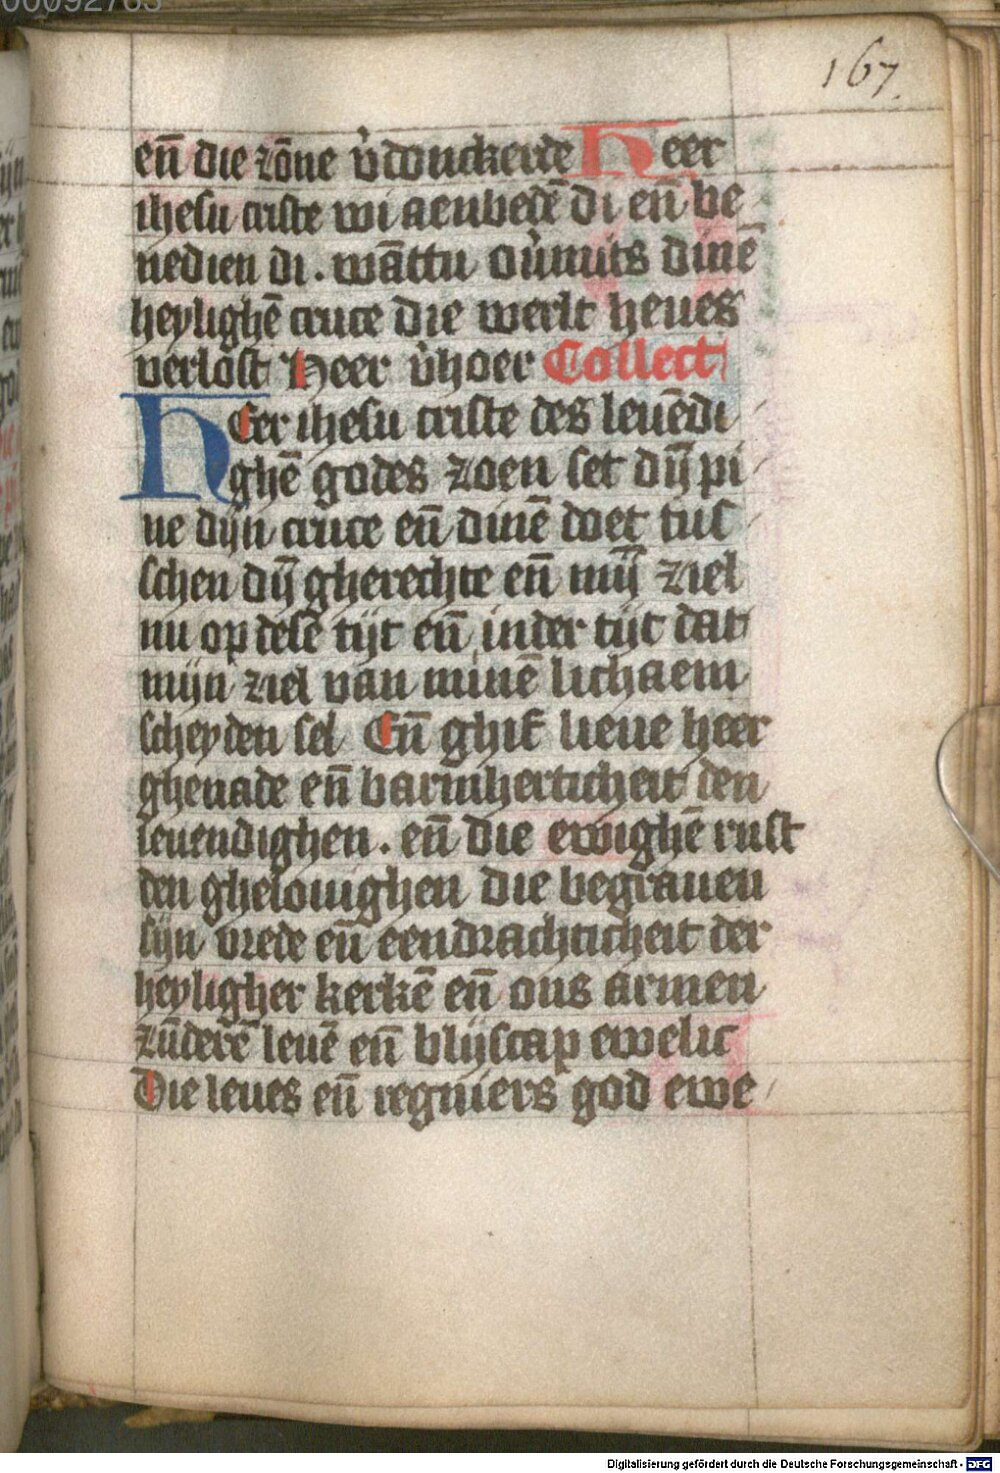 00092763
167.
en̄ die zōne v̾donckerde Heer
ihesu criste wi aenbedē di en̄ be
nedien di. wāttu ouͮmits dinē
heylighē cruce die werlt heues
verlost Heer v̾hoer Collect
Heer ihesu criste des leuēdi
ghē godes zoen set dȳ pi
ne dijn cruce en̄ dinē doet tus
schen dȳ gherechte en̄ mȳ ziel
nu op dese tijt en̄ in der tijt dat
mijn ziel van minē lichaem
scheyden sel En̄ ghif lieue heer
ghenade en̄ barmherticheit den
leuendighen. en̄ die ewighē rust
den ghelouighen die begrauen
sijn vrede en̄ eendrachticheit der
heyligher kerkē en̄ ons armen
zūderē leuē en̄ blijscap ewelic
Die leues en̄ regniers god ewe
Digitalisierung gefördert durch die Deutsche Forschungsgemeinschaft - DFG